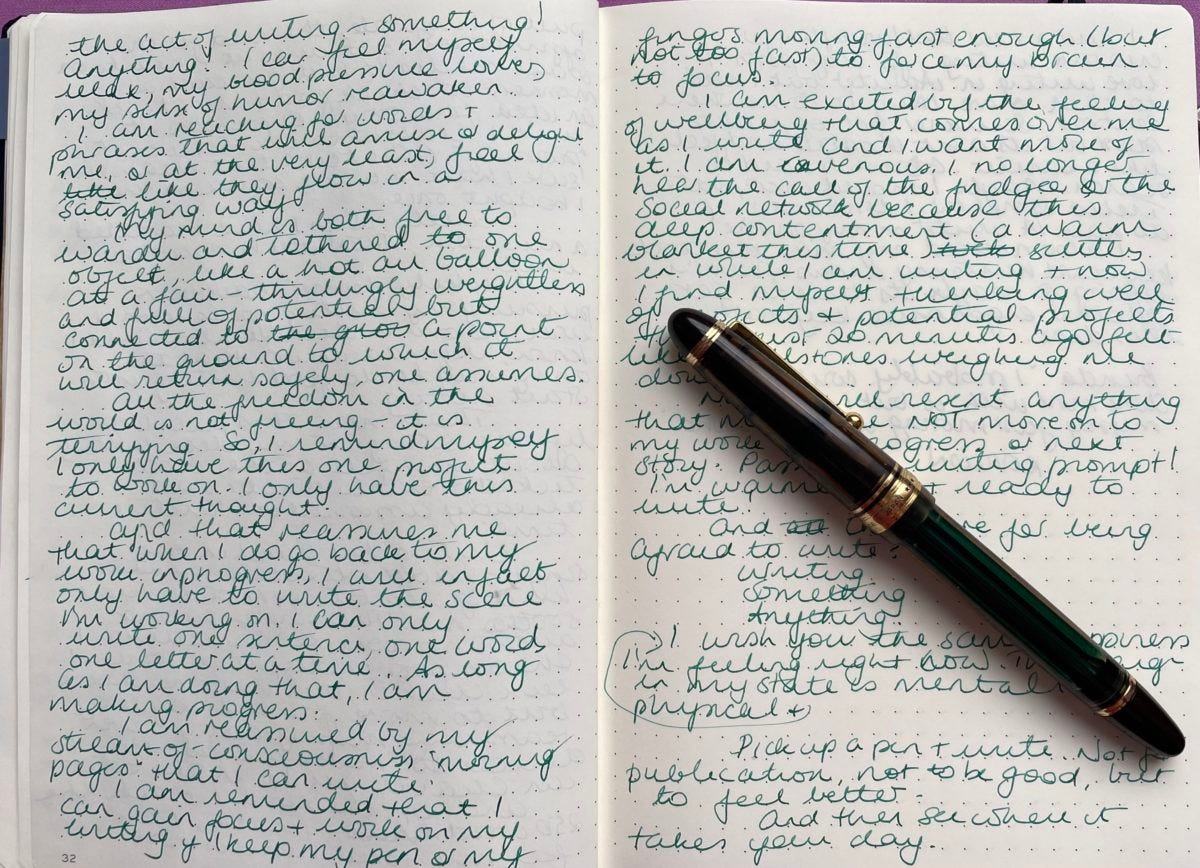 the act of writing - something!
Anything! I can feel myself
relax, my blood pressure lowers,
my sense of humor reawaken
I am reaching for words +
phrases that will amuse or delight
me, or at the very least, feel
like like they flow in a
satisfying way
My mind is both free to
wander and tethered to one
object, like a hot air balloon
at a fair - thrillingly weightless
and full of potential, but
connected to the grou a point
on the ground to which it
will return safely, one assumes.
All the freedom in the
world is not freeing - it is
terrifying. So, I remind myself
I only have this one project
to work on. I only have this
current thought.
And that reassures me
that when I do go back to my
work in progress, I will in fact
only have to write the scene
I'm working on. I can only
write one sentence, one word,
one letter at a time. As long
as I am doing that, I am
making progress.
I am reassured by my
stream-of-consciousness 'morning
pages' that I can write.
I am reminded that I
can gain focus + work on my
writing if I keep my pen or my
32
fingers moving fast enough (but
not too fast) to force my brain
to focus.
I am excited by the feeling
of wellbeing that comes over me
as I write and I want more of
it. I am ravenous. I no longer
hear the call of the fridge or the
social network because this
deep contentment (a warm
blanket this time) settles
in while I am writing + now
I find myself thinking well
projects + potential projects
just 20 minutes ago felt
like stones weighing me
down
resent anything
that not more on to
my work progress or next
story. writing prompt!
I'm ready to
write.
And for being
afraid to write:
Writing.
Something
Anything.
I wish you the same happiness
I'm feeling right now. The
in my state is mental
physical +
Pick up a pen + write. Not for
publication, not to be good, but
to feel better.
And then see where it
takes your day.